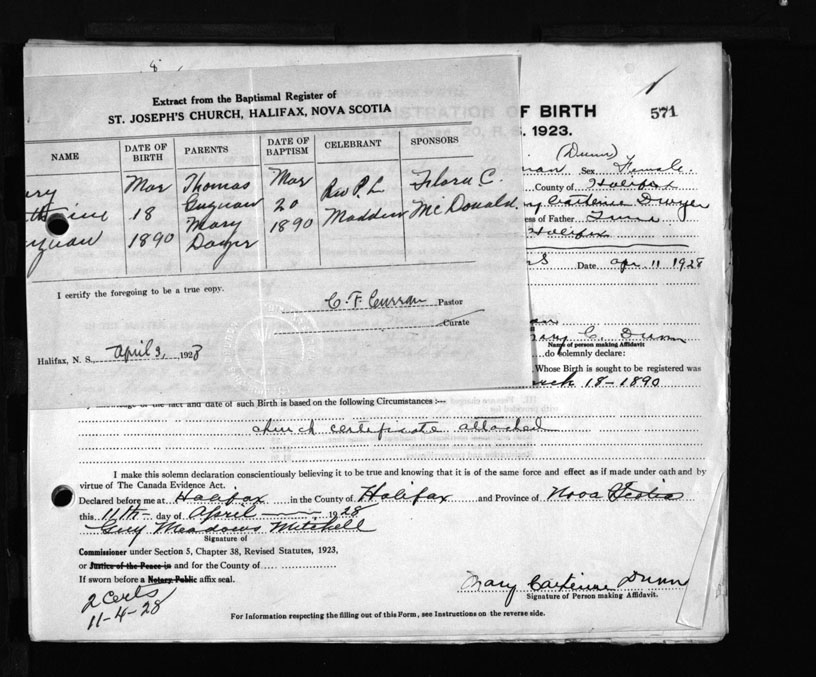 Extract from the Baptismal Register of
ST. JOSEPH'S CHURCH, HALIFAX, NOVA SCOTIA
NAME DATE OF BIRTH PARENTS DATE OF BAPTISM CELEBRANT SPONSORS
Mar Thomas Mar Rev P. L. Flora C.
18 20 Madden McDonald
Mary 1890
1890
I certify the foregoing to be a true copy.
C. F. Curran Pastor
Curate
Halifax, N. S., April 3, 1928
F BIRTH 571
S. 1923.
(Dunn)
Sex Female
County of Halifax
Dwyer
ess of Father
Halifax
Date Apr 11 1928
C. Dunn
Name of person making Affidavit
do solemnly declare:
Whose Birth is sought to be registered was
18-1890
fact and date of such Birth is based on the following Circumstances :—
church certificate attached
I make this solemn declaration conscientiously believing it to be true and knowing that it is of the same force and effect as if made under oath and by
virtue of The Canada Evidence Act.
Declared before me at Halifax in the County of Halifax and Province of Nova Scotia
this 11th day of April 1928
Guy Meadows Mitchell
Signature of
Commissioner under Section 5, Chapter 38, Revised Statutes, 1923,
or Justice of the Peace in and for the County of
If sworn before a Notary Public affix seal.
2 Certs
11-4-28
Mary Dunn
Signature of Person making Affidavit.
For Information respecting the filling out of this Form, see Instructions on the reverse side.